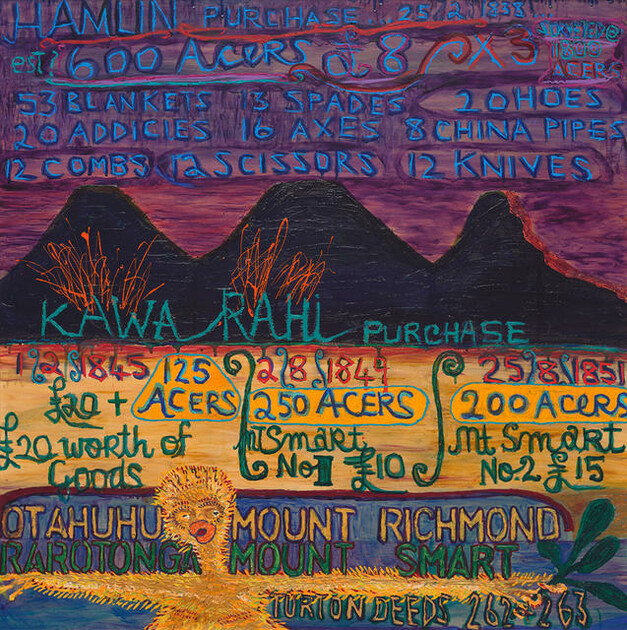 HAMLIN PURCHASE... 25/2/1838...
est? 600 Acers at 8
1800
ACERS
53 BLANKETS 13 SPADES 20 HOES
20 ADDICIES 16 AXES 8 CHINA PIPES
12 COMBS 12 SCISSORS 12 KNIVES
KAWA RAHI PURCHASE
1/2/1845 125 ACERS
£20 +
£20 worth of Goods
2/8/1849
250 ACERS
Mt Smart
No 1 £10
25/8/1851
200 Acers
Mt Smart
No. 2 £15
OTAHUHU MOUNT RICHMOND
RAROTONGA MOUNT SMART
TURTON DEEDS 262-263